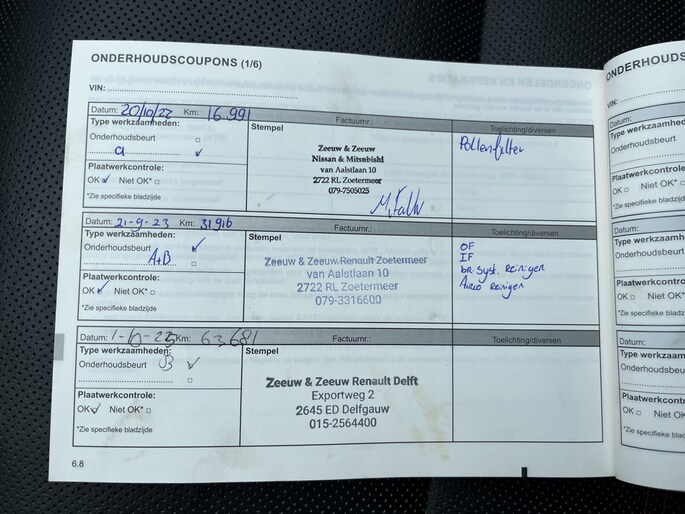 ONDERHOUDSCOUPONS (1/6)
VIN:
Datum: 20/10/22 Km: 16.991 Factuurnr.: Toelichting/diversen
Type werkzaamheden:
Onderhoudsbeurt
a
Plaatwerkcontrole:
OK Niet OK*
*Zie specifieke bladzijde
Stempel
Zeeuw & Zeeuw
Nissan & Mitsubishi
van Aalstlaan 10
2722 RL Zoetermeer
079-7505025
Pollenfilter
Datum: 21-9-23 Km: 31916 Factuurnr.: Toelichting/diversen
Type werkzaamheden:
Onderhoudsbeurt
A+B
Plaatwerkcontrole:
OK Niet OK*
*Zie specifieke bladzijde
Stempel
Zeeuw & Zeeuw Renault Zoetermeer
van Aalstlaan 10
2722 RL Zoetermeer
079-3316600
OF
IF
br. syst. Reinigen
Airco Reinigen
Datum: 1-10-25 Km: 63.681 Factuurnr.: Toelichting/diversen
Type werkzaamheden:
Onderhoudsbeurt
Plaatwerkcontrole:
OK Niet OK*
*Zie specifieke bladzijde
Stempel
Zeeuw & Zeeuw Renault Delft
Exportweg 2
2645 ED Delfgauw
015-2564400
6.8
ONDERHOUDS
VIN:
Datum:
Type werkzaamhed
Onderhoudsbeurt
Plaatwerkcontrole:
OK Niet OK
*Zie specifieke bladz
Datum:
Type werkzaam
Onderhoudsbeurt
Plaatwerkcontrol
OK Niet OK
*Zie specifieke bla
Datum:
Type werkzaam
Onderhoudsbeu
Plaatwerkcontr
OK Niet OK
*Zie specifieke blad